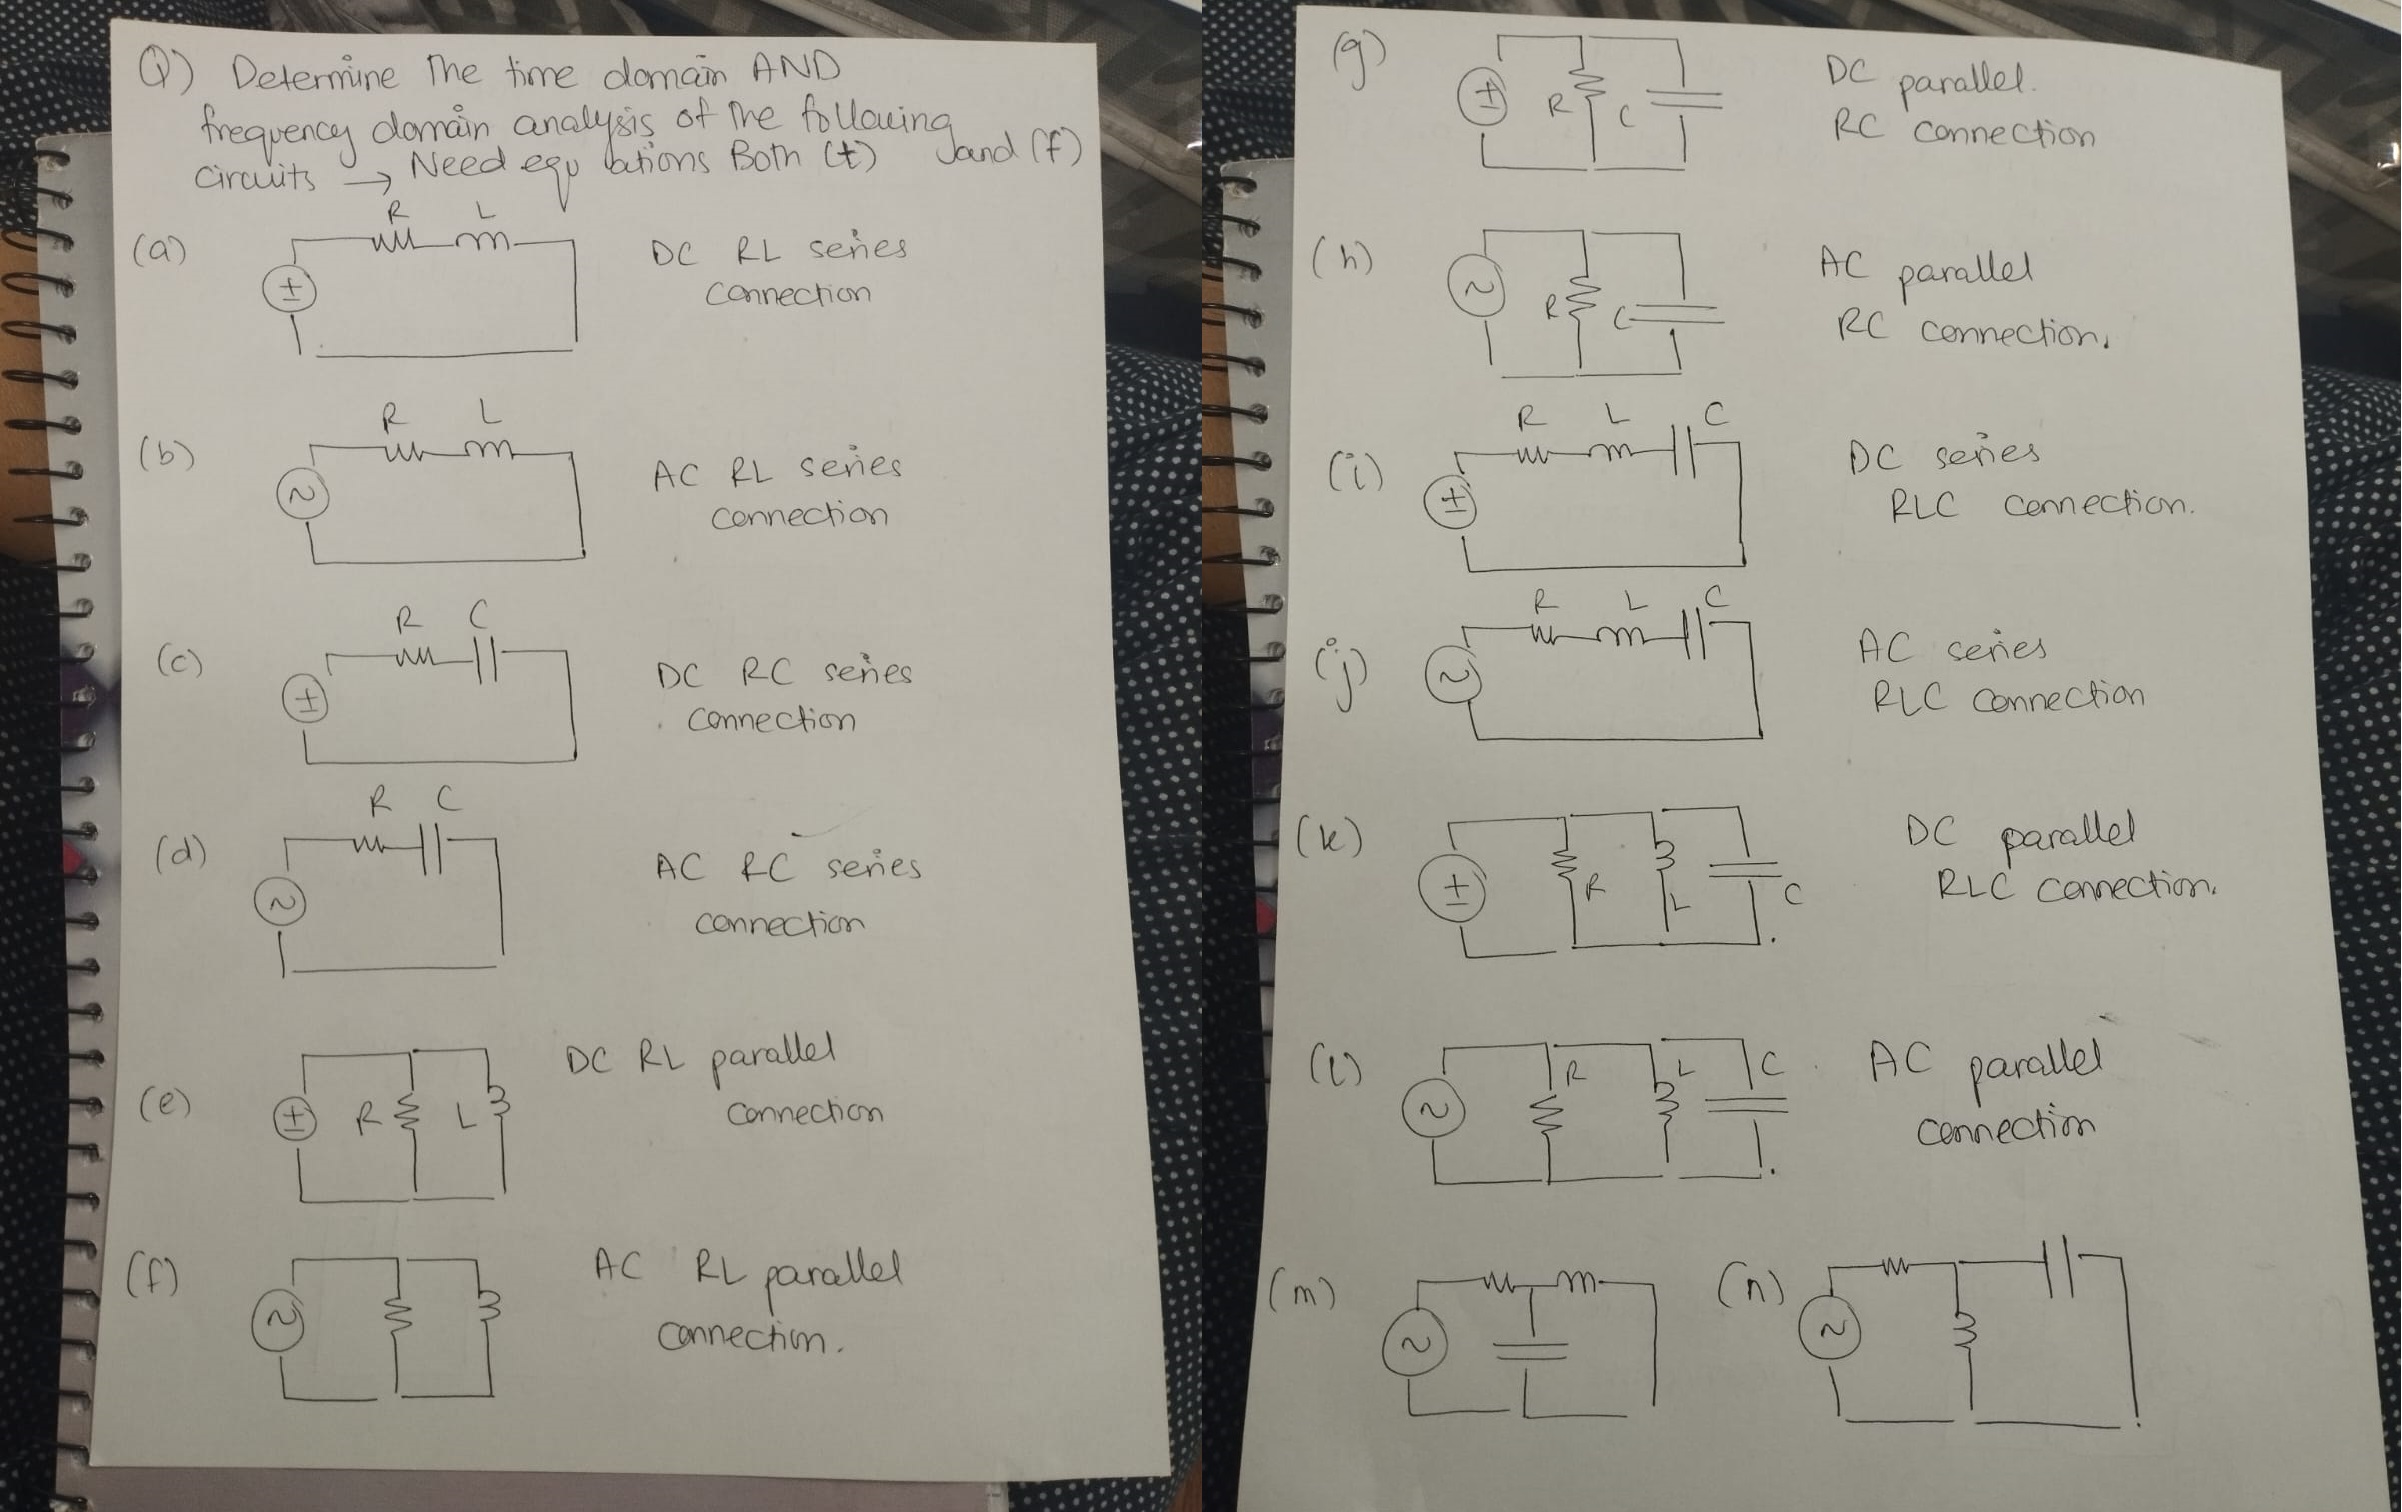 Q) Determine The time domain AND
frequency domain analysis of The following
circuits → Need equations Both (t) and (f)
(a)
R L
±
DC RL series
connection
(b)
R L
~
AC RL series
connection
(c)
R C
±
DC RC series
connection
(d)
R C
~
AC RC series
connection
(e)
±
R L
DC RL parallel
connection
(f)
~
AC RL parallel
connection.
(g)
±
R C
DC parallel.
RC connection
(h)
~
R C
AC parallel
RC connection.
(i)
R L C
±
DC series
RLC connection.
(j)
R L C
~
AC series
RLC connection
(k)
±
R L C
DC parallel
RLC connection.
(l)
~
R L C
AC parallel
connection
(m)
~
(n)
~